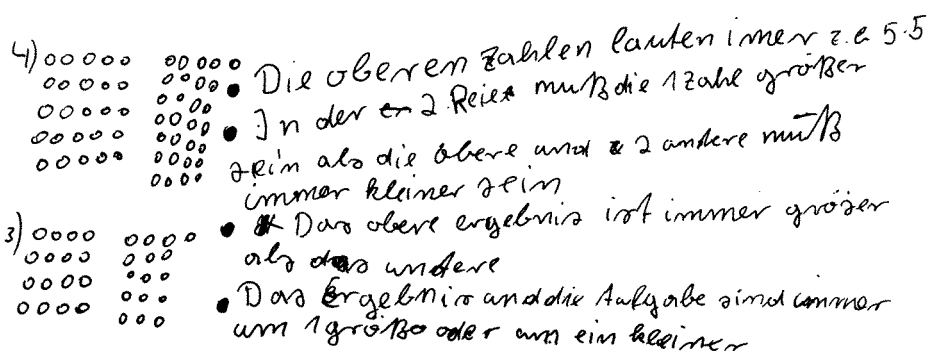 4)
Die oberen Zahlen lauten imer z.B 5·5
In der 2 Reie muß die 1 Zahl größer
sein als die obere und 2 andere muß
immer kleiner sein
Das obere ergebnis ist immer gröser
als das untere
3)
Das Ergebnis und die Aufgabe sind immer
um 1 größo oder um ein kleiner